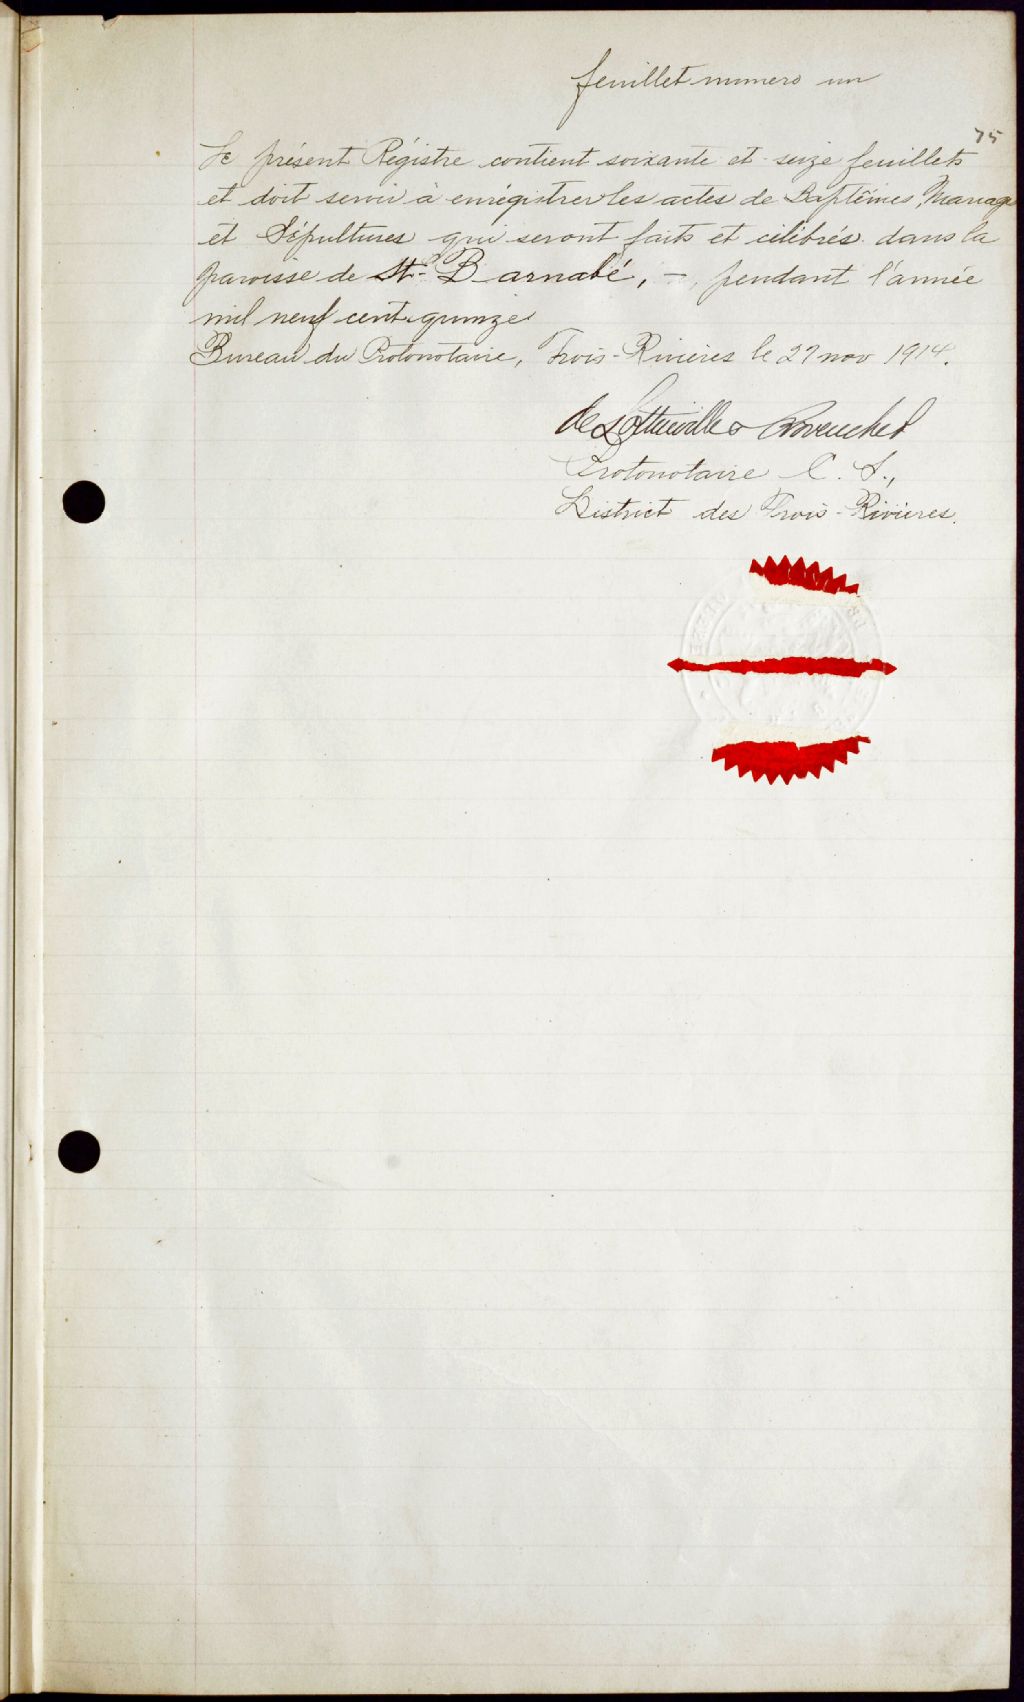 feuillet numero un
75
Le présent Régistre contient soixante et seize feuillets
et doit servir à enrégistrer les actes de Baptêmes, Mariage
et Sépultures qui seront faits et célébrés dans la
paroisse de St-Barnabé, -, pendant l'année
mil neuf cent quinze
Bureau du Protonotaire, Trois-Rivières le 27 nov 1914.
de Lottinville &
Protonotaire C. S.,
District des Trois-Rivières.